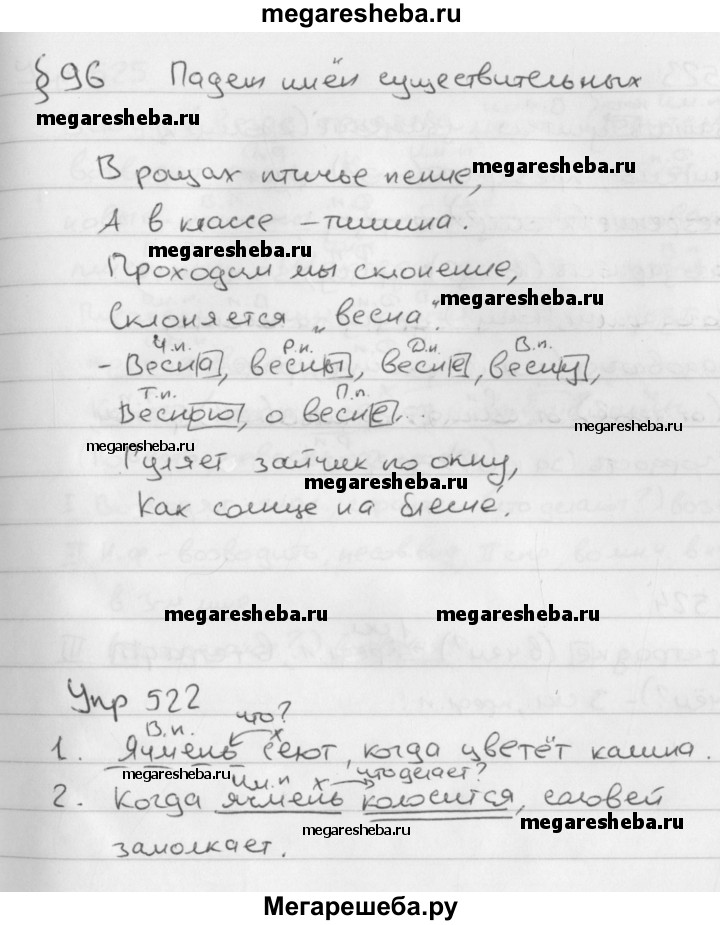 megaresheba.ru
§ 96 Падеж имён существительных
megaresheba.ru
В рощах птичье пение,
megaresheba.ru
А в классе – тишина.
megaresheba.ru
Проходим мы склонение,
megaresheba.ru
Склоняется „весна“.
И.п. Р.п. Д.п. В.п.
- Весна, весны, весне, весну,
Т.п. П.п.
Весною, о весне...
megaresheba.ru megaresheba.ru
Гуляет зайчик по окну,
megaresheba.ru
Как солнце на блесне.
megaresheba.ru megaresheba.ru
Упр 522
В.п. что? х
1. Ячмень сеют, когда цветёт калина.
megaresheba.ru
Им.п х что делает?
2. Когда ячмень колосится, соловей
megaresheba.ru megaresheba.ru
замолкает.
megaresheba.ru
Мегарешеба.ру